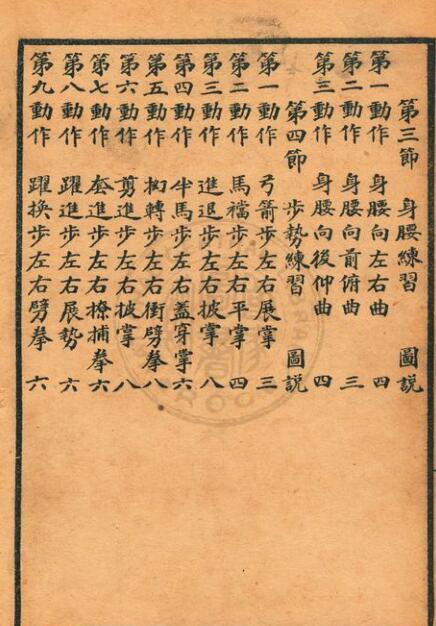 第三節 身腰練習 圖説
第一動作 身腰向左右曲 四
第二動作 身腰向前俯曲 三
第三動作 身腰向後仰曲 四
第四節 步勢練習 圖説
第一動作 弓箭步左右展掌 三
第二動作 馬襠步左右平掌 四
第三動作 進退步左右披掌 八
第四動作 半馬步左右蓋穿掌 六
第五動作 拗轉步左右衝劈拳 八
第六動作 剪進步左右披掌 八
第七動作 奎進步左右撩捕拳 六
第八動作 躍進步左右展勢 六
第九動作 躍換步左右劈拳 六